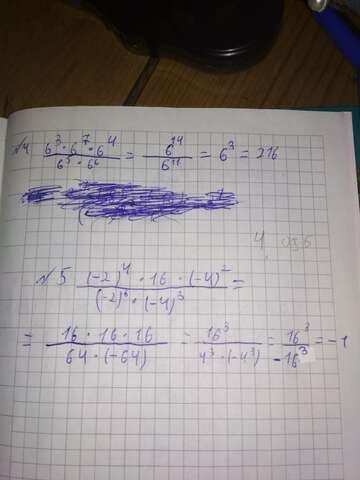 №4 (6³ · 6⁷ · 6⁴)/(6⁵ · 6⁶) = 6¹⁴/6¹¹ = 6³ = 216
№5 ((-2)⁴ · 16 · (-4)²)/((-2)⁶ · (-4)³) =
= (16 · 16 · 16)/(64 · (-64)) = 16³/(4³ · (-4³)) = 16³/-16³ = -1